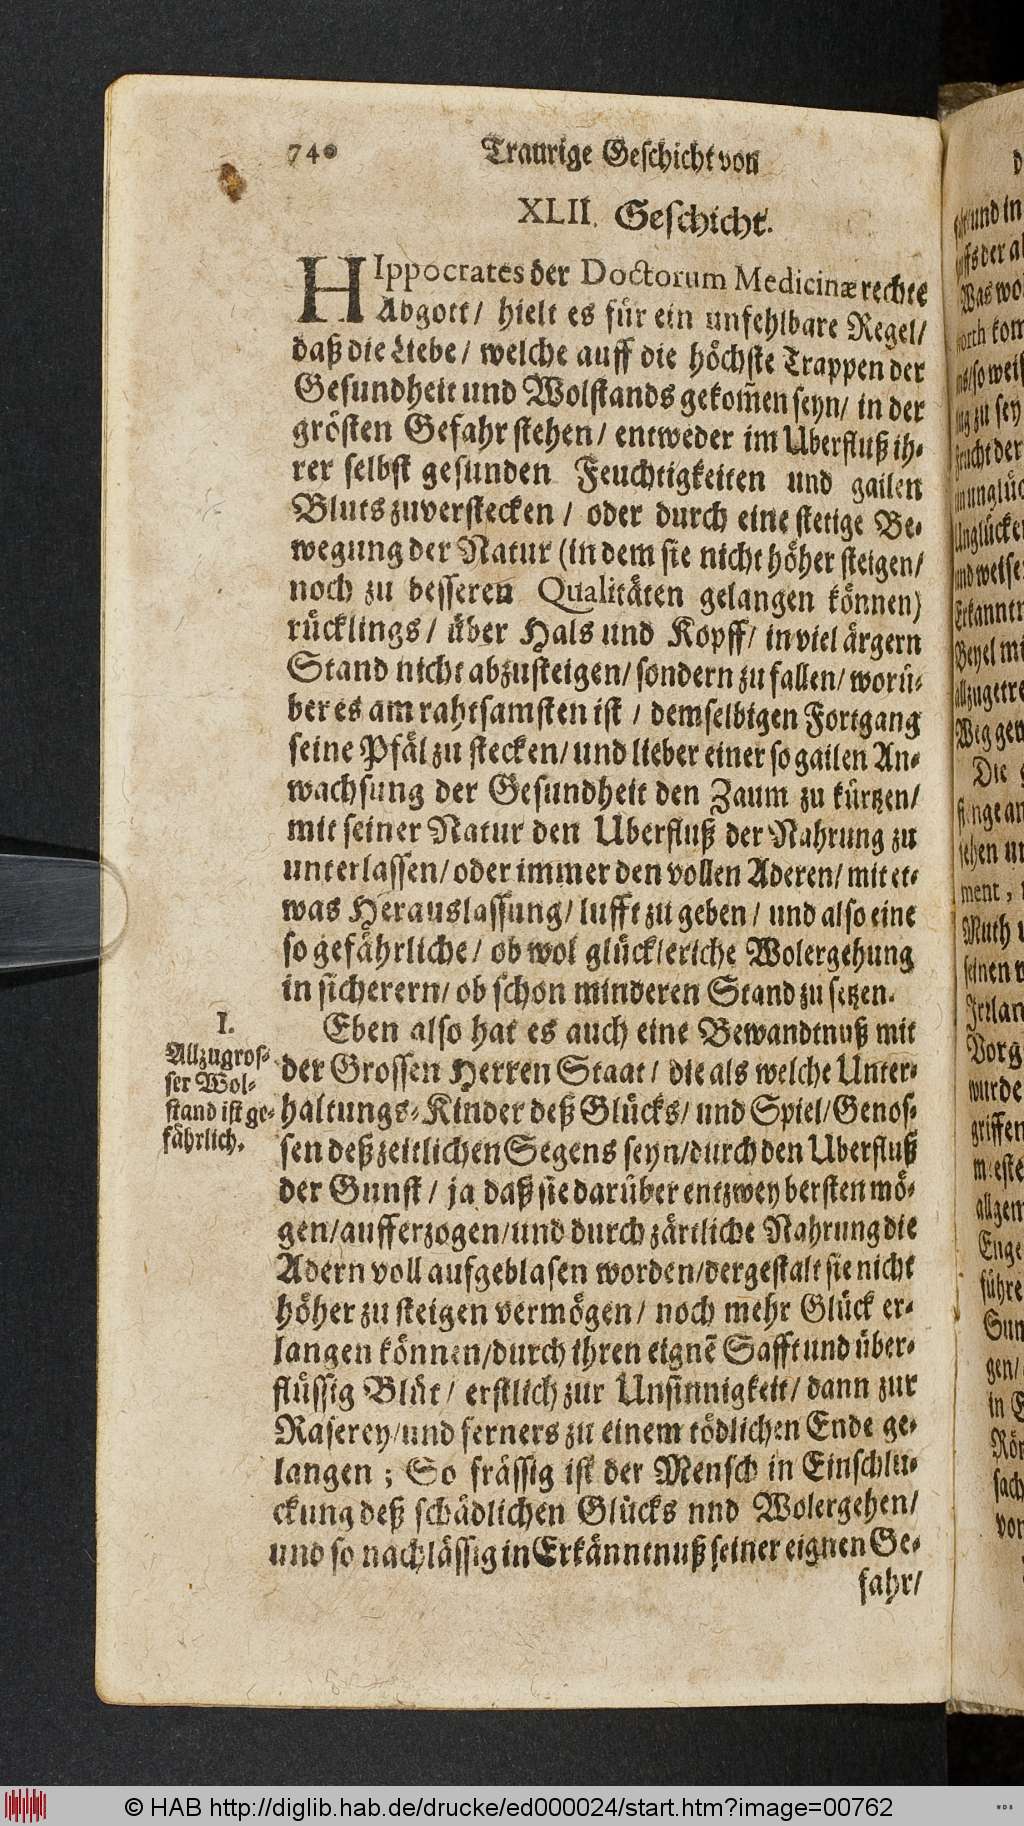 740 Traurige Geschicht von
XLII. Geschicht.
HIppocrates der Doctorum Medicinæ rechte
Abgott/ hielt es für ein unfehlbare Regel/
daß die Liebe/ welche auff die höchste Trappen der
Gesundheit und Wolstands gekom̃en seyn/ in der
grösten Gefahr stehen/ entweder im Uberfluß ih-
rer selbst gesunden Feuchtigkeiten und gailen
Bluts zuverstecken / oder durch eine stetige Be-
wegung der Natur (in dem sie nicht höher steigen/
noch zu besseren Qualitäten gelangen können)
rücklings/ über Hals und Kopff/ in viel ärgern
Stand nicht abzusteigen/ sondern zu fallen/ worü-
ber es am rahtsamsten ist / demselbigen Fortgang
seine Pfäl zu stecken/ und lieber einer so gailen An-
wachsung der Gesundheit den Zaum zu kürtzen/
mit seiner Natur den Uberfluß der Nahrung zu
unterlassen/ oder immer den vollen Aderen/ mit et-
was Herauslassung/ lufft zu geben/ und also eine
so gefährliche/ ob wol glückseriche Wolergehung
in sicherern/ ob schon minderen Stand zu setzen.
I.
Allzugros-
ser Wol-
stand ist ge-
fährlich.
Eben also hat es auch eine Bewandtnuß mit
der Grossen Herren Staat/ die als welche Unter-
haltungs-Kinder deß Glücks/ und Spiel/Genos-
sen deß zeitlichen Segens seyn/durch den Uberfluß
der Gunst/ ja daß sie darüber entzwey bersten mö-
gen/aufferzogen/und durch zärtliche Nahrung die
Adern voll aufgeblasen worden/dergestalt sie nicht
höher zu steigen vermögen/ noch mehr Glück er-
langen können/durch ihren eignẽ Safft und über-
flüssig Blüt/ erstlich zur Unsinnigkeit/ dann zur
Raserey/und ferners zu einem tödlichen Ende ge-
langen ; So frässig ist der Mensch in Einschlu-
ckung deß schädlichen Glücks nnd Wolergehen/
und so nachlässig in Erkänntnuß seiner eignen Ge-
fahr/
© HAB http://diglib.hab.de/drucke/ed000024/start.htm?image=00762